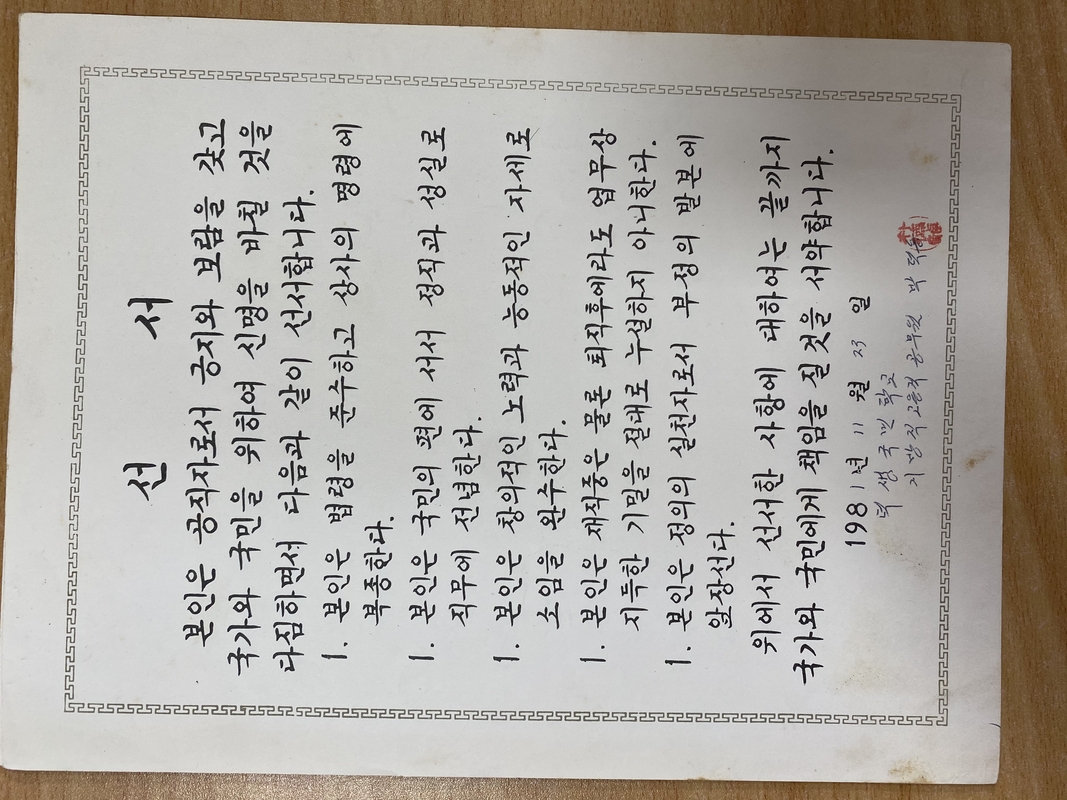 선 서
본인은 공직자로서 긍지와 보람을 갖고
국가와 국민을 위하여 신명을 바칠 것을
다짐하면서 다음과 같이 선서합니다.
1. 본인은 법령을 준수하고 상사의 명령에
복종한다.
1. 본인은 국민의 편에 서서 정직과 성실로
직무에 전념한다.
1. 본인은 창의적인 노력과 능동적인 자세로
소임을 완수한다.
1. 본인은 재직중은 물론 퇴직후에라도 업무상
지득한 기밀을 절대로 누설하지 아니한다.
1. 본인은 정의의 실천자로서 부정의 발본에
앞장선다.
위에서 선서한 사항에 대하여는 끝까지
국가와 국민에게 책임을 질것을 서약합니다.
1981년 11월 23일
국민학교
지방직고용직 공무원 박